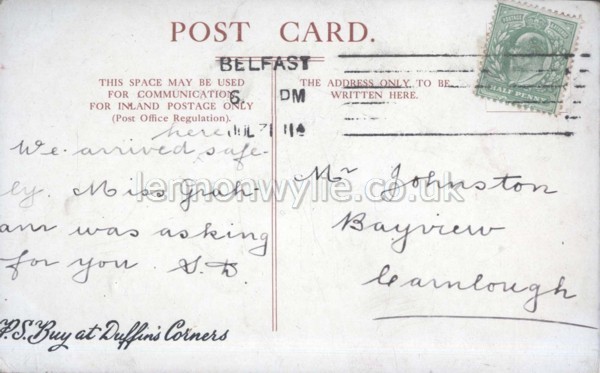 POST CARD.
BELFAST
THIS SPACE MAY BE USED
FOR COMMUNICATION
FOR INLAND POSTAGE ONLY
(Post Office Regulation).
THE ADDRESS ONLY TO BE
WRITTEN HERE.
here
We arrived safe-
ly. Miss Grah-
am was asking
for you. S.D.
P.S. Buy at Duffin's Corners
Mr Johnston
Bayview
Carnlough
HALF PENNY
lemonwylie.co.uk